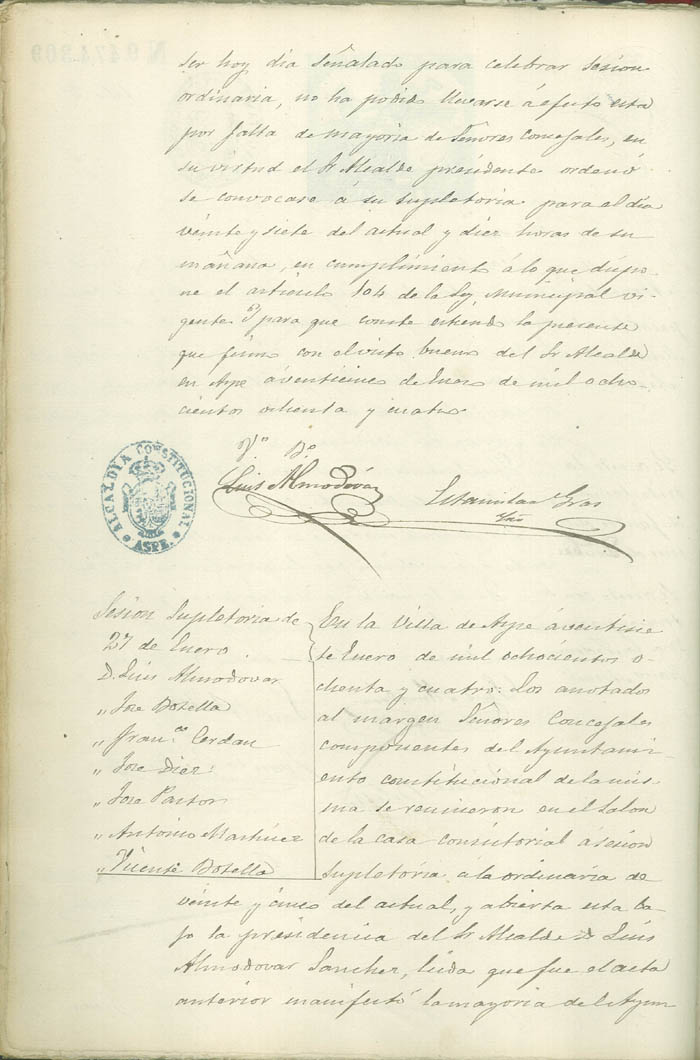 ser hoy dia señalado para celebrar sesion
ordinaria, no ha podido llevarse á efecto esta
por falta de mayoria de Señores Concejales, en
su virtud el Sr Alcalde presidente ordenó
se convocase á su supletoria para el dia
veinte y siete del actual y diez horas de su
mañana, en cumplimiento á lo que dispo-
ne el articulo 104 de la Ley Municipal vi-
gente. Y para que conste estiendo la presente
que firmo con el visto bueno del Sr Alcalde
en Aspe á veinticinco de Enero de mil ocho-
cientos ochenta y cuatro.
Vº Bº
Luis Almodóvar
Estanislao Gras
Srio
ALCALDYA CONSTITUCIONAL
ASPE.
Sesion Supletoria de
27 de Enero
D. Luis Almodovar
" Jose Botella
" Fran.co Cerdan
" Jose Diez
" Jose Pastor
" Antonio Martinez
" Vicente Botella
En la Villa de Aspe á veintisie
te Enero de mil ochocientos o-
chenta y cuatro: Los anotados
al margen Señores Concejales
componentes del Ayuntami-
ento constitucional de la mis-
ma se reunieron en el Salon
de la casa consistorial á sesion
supletoria á la ordinaria de
veinte y cinco del actual, y abierta esta ba
jo la presidencia del Sr Alcalde D Luis
Almodovar Sanchez, leida que fue el acta
anterior manifestó la mayoria del Ayun